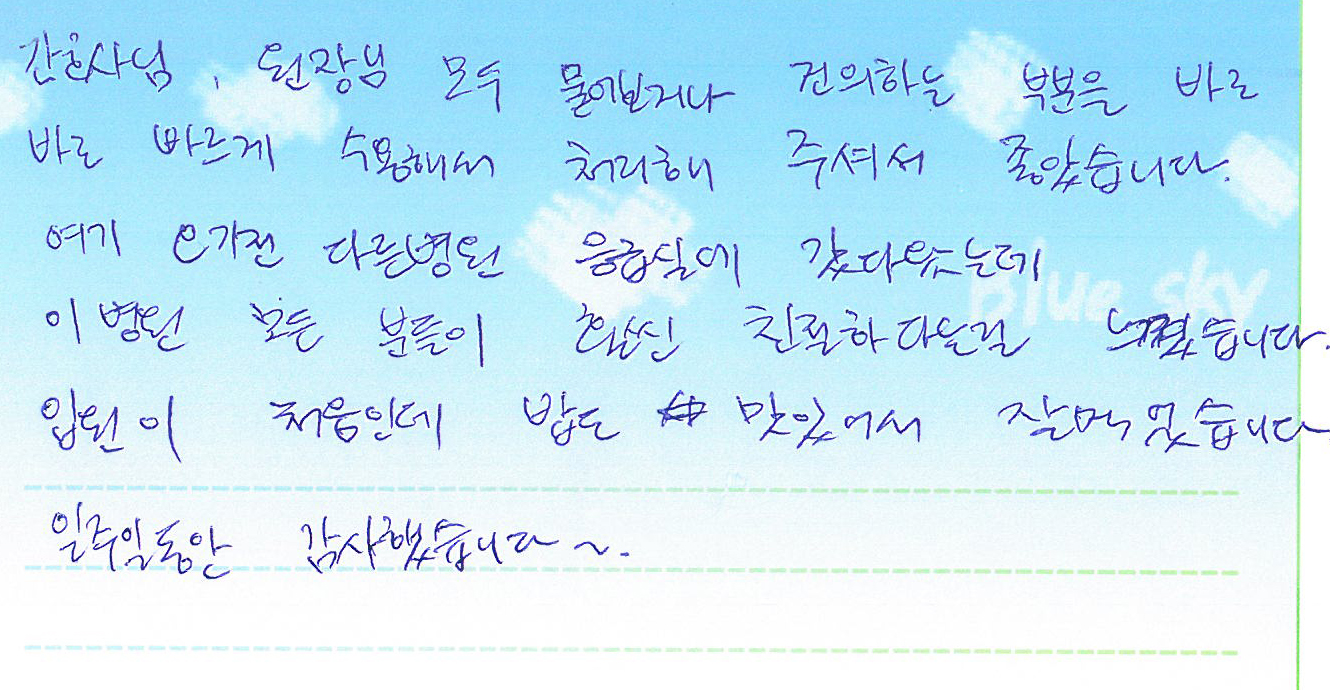 간호사님, 원장님 모두 물어보거나 건의하는 부분을 바로
바로 빠르게 수용해서 처리해 주셔서 좋았습니다.
여기 오기전 다른병원 응급실에 갔다왔는데
Blue sky
이 병원 모든 분들이 훨씬 친절하다는걸 느꼈습니다.
입원이 처음인데 밥도 맛있어서 잘먹었습니다
일주일동안 감사했습니다~.